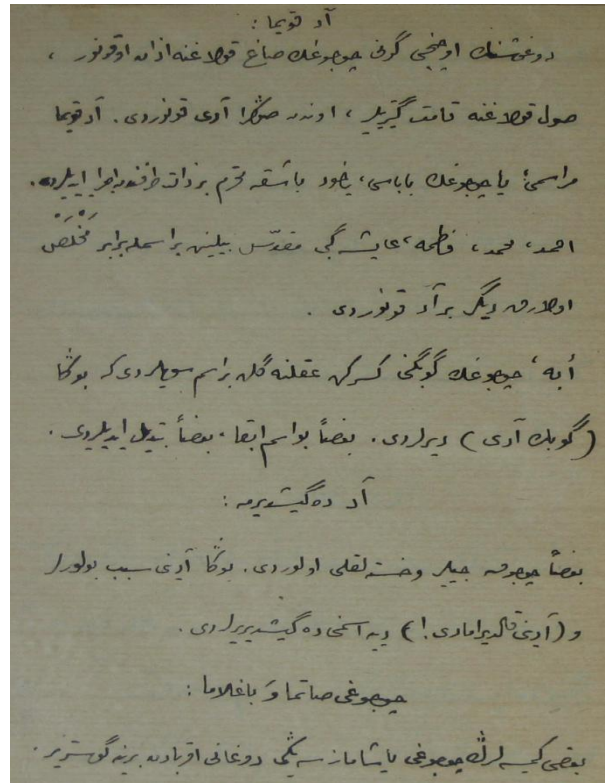 آد قويما :
دوغشنك اوچنجى گونى چوجوغك صاغ قولاغنه اذان اوقونور ،
صول قولاغنه قامت گتيريلير ، اوندن صوڭرا آدى قونوردى . آد قويما
مراسمى؛ يا چوجوغك باباسى، ياخود باشقه محترم بر ذات طرفندن اجرا ايديليردى.
احمد، محمد، فاطمه، عايشه گبى مقدّس بيلينن بر اسمله برابر مَخْلَصْ
اولارق ديگر بر آد قونوردى .
أبه، چوجوغك گوبگنى كسركن عقلنه گلن بر اسم سويلردى كه بوڭا
(گوبك آدى) ديرلردى. بعضاً بو اسم ابقا، بعضاً تبديل ايديليردى.
آد ده گيشديرمه :
بعضاً چوجوق جيليز و خسته لقلى اولوردى. بوڭا آدينى سبب بولورلر
و (آدينى قالديرامادى!) ديه اسمنى ده گيشديريرلردى.
چوجوغى صاتما وَ باغلاما :
بعضى كمسه لرڭ چوجوغى ياشامازسه يڭى دوغانى اقربادن برينه گوستريلير.